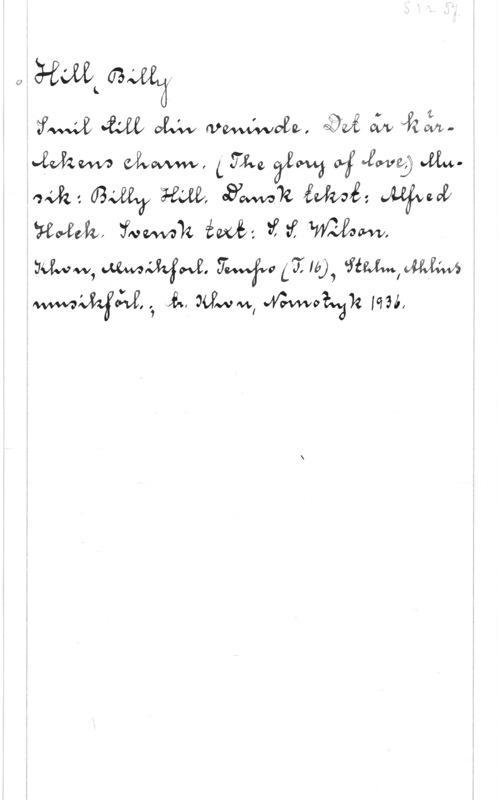 S 12 57.
Hill, Billy
Smil till din veninde. Det är kär-
lekens charm. (The glory of love.) Mu-
sik: Billy Hill. Dansk tekst: Alfred
Holck. Svensk text: S. S. Wilson.
Khvn, Musikforl. Tempo (T. 16), Sthlm, Ahlins
musikförl.; tr. Khvn, Nomotryk 1936.